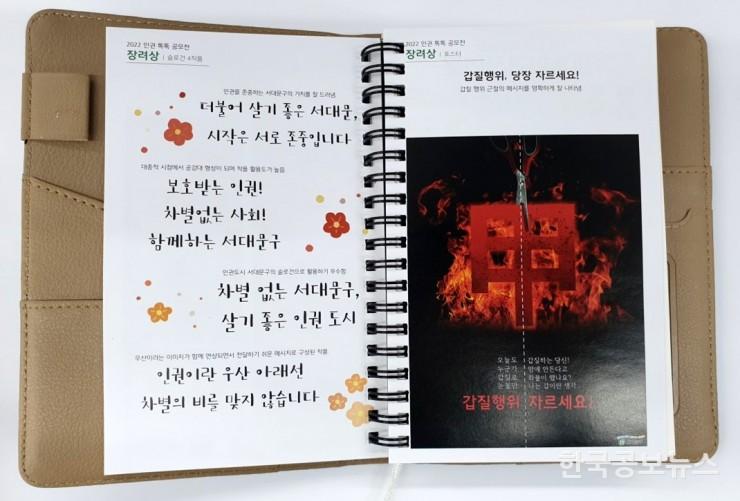 2022 인권 톡톡 공모전
장려상 | 슬로건 4작품
인권을 존중하는 서대문구의 가치를 잘 드러냄
더불어 살기 좋은 서대문,
시작은 서로 존중입니다
대중적 시점에서 공감대 형성이 되며 작품 활용도가 높음
보호받는 인권!
차별없는 사회!
함께하는 서대문구
인권도시 서대문구의 슬로건으로 활용하기 우수함
차별 없는 서대문구,
살기 좋은 인권 도시
우산이라는 이미지가 함께 연상되면서 전달하기 쉬운 메시지로 구성된 작품
인권이란 우산 아래선
차별의 비를 맞지 않습니다
2022 인권 톡톡 공모전
장려상 | 포스터
갑질행위, 당장 자르세요!
갑질 행위 근절의 메시지를 명확하게 잘 나타냄
甲
오늘도 갑질하는 당신!
누군가 맘에 안든다고
갑질로 화풀이 했나요?
눈꼴만 나는 갑이란 생각
갑질행위 자르세요!
한국공보뉴스